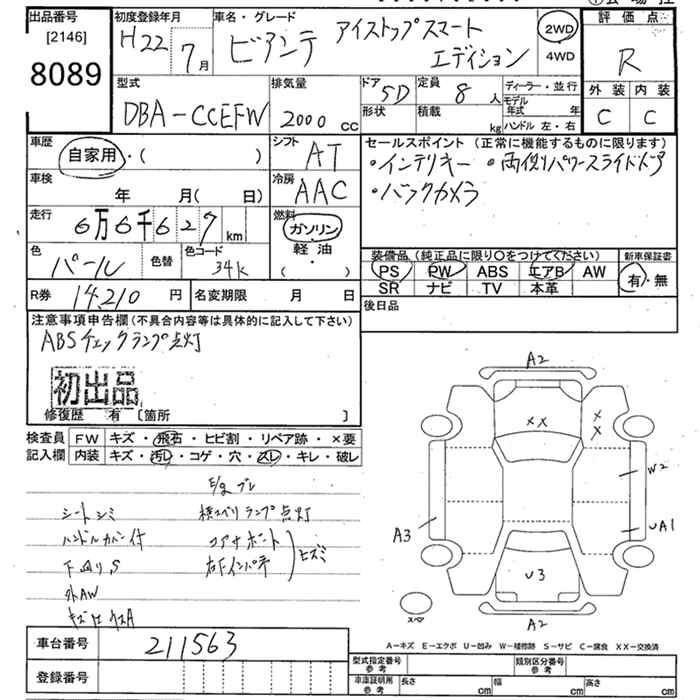 出品番号
[2146]
8089
初度登録年月
H22 7月
車名・グレード
ビアンテ アイストップスマート
エディション
2WD
4WD
評価点
R
外装 内装
C C
型式
DBA-CCEFW
排気量
2000 cc
ドア 5D
形状
定員 8 人
積載 kg
ディーラー・並行
モデル年式 年
ハンドル 左・右
車歴
自家用・( )
車検
年 月( 日)
走行
6万6千627 km
色
パール
色替
色コード
34K
シフト
AT
冷房
AAC
燃料
ガソリン
軽油
( )
セールスポイント (正常に機能するものに限ります)
・インテリキー ・両側パワースライドドア
・バックカメラ
装備品 (純正品に限り○をつけてください)
PS PW ABS エアB AW
SR ナビ TV 本革
新車保証書
有・無
R券 14,210 円
名変期限 月 日
後日品
注意事項申告欄 (不具合内容等は具体的に記入して下さい)
ABSチェックランプ点灯
初出品
修復歴 有 [箇所 ]
検査員 FW キズ・飛石・ヒビ割・リペア跡・×要
記入欄 内装 キズ・汚レ・コゲ・穴・スレ・キレ・破レ
E/g ブレ
シートシミ 横スベリランプ点灯
ハンドルカバー付 コアサポート
下回りS 右Fインパネ
ヒズミ
外AW
A2
XX
X
X
W2
UA1
A3
U3
A2
スペア
A-キズ E-エクボ U-凹み W-補修跡 S-サビ C-腐食 XX-交換済
車台番号 211563
登録番号
型式指定番号
参考
類別区分番号
参考
車庫証明用
参考
長さ cm
幅 cm
高さ cm